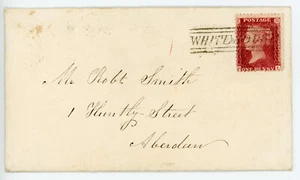 POSTAGE
ONE PENNY
Mr Robt Smith
1 Huntly Street
Aberdeen